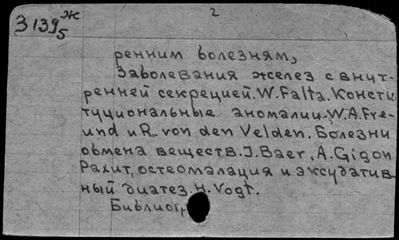 З 139ж/5
2
ренним болезням,
Заболевания желез с внут-
ренней секрецией. W. Falta. Консти
туциональные аномалии. W. A. Fre-
und и R. von den Velden. Болезни
обмена веществ. J. Baer, A. Gigon
Рахит, остеомалация и эксудатив-
ный диатез. H. Vogt.
Библиог